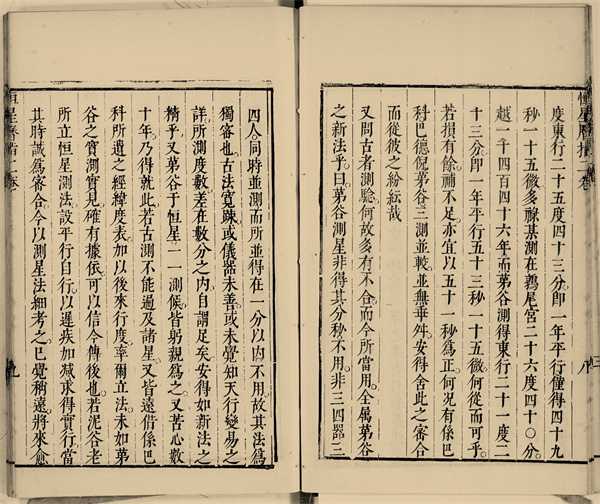 恒星曆指一卷
度東行二十五度四十三分即一年平行僅得四十九
秒一十五微多祿某測在鶉尾宮二十六度四十〇分
越一千四百四十六年而第谷測得東行二十一度二
十三分即一年平行五十三秒一十五微何從而可乎
若損有餘補不足亦宜以五十一秒為正何況有係巴
科巴德倪第谷三測並較並無乖舛安得舍此之審合
而從彼之紛紜哉
又問古者測驗何故多有不合而今所當用全屬第谷
之新法乎曰第谷測星非得其分秒不用非三四器三
八
四人同時並測而所並得在一分以內不用故其法為
獨審也古法寬疎或儀器未善或未覺知天行變易之
詳所測度數差在數分之內自謂足矣安得如新法之
精乎又第谷于恒星一一測候皆躬親為之又苦心數
十年乃得就此若古測不能過及諸星又皆遠借係巴
科所遺之經緯度表加以後來行度率爾立法未如第
谷之實測實見確有據依可以信今傳後也若泥谷老
所立恒星測法設平行自行以遲疾加減求得實行當
其時誠為審合今以測星法細考之已覺稍遠將來愈
恒星曆指一卷
九